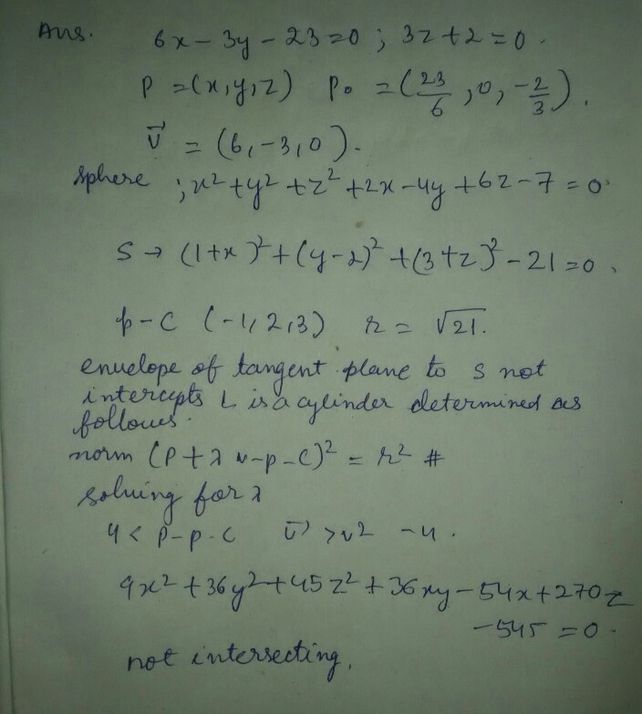 Ans. 6x - 3y - 23 = 0 ; 3z + 2 = 0 .
P = (x, y, z) P₀ = (23/6, 0, -2/3) .
v⃗ = (6, -3, 0) .
Sphere ; x² + y² + z² + 2x - 4y + 6z - 7 = 0
S → (1+x)² + (y-2)² + (3+z)² - 21 = 0 .
p-c (-1, 2, 3) r = √21.
envelope of tangent plane to S not
intercepts L is a cylinder determined as
follows.
norm (P + λ v - p - c)² = r² #
solving for λ
4 < p - p - c v⃗ > v² - 4 .
9x² + 36y² + 45z² + 36xy - 54x + 270z
- 545 = 0 .
not intersecting.